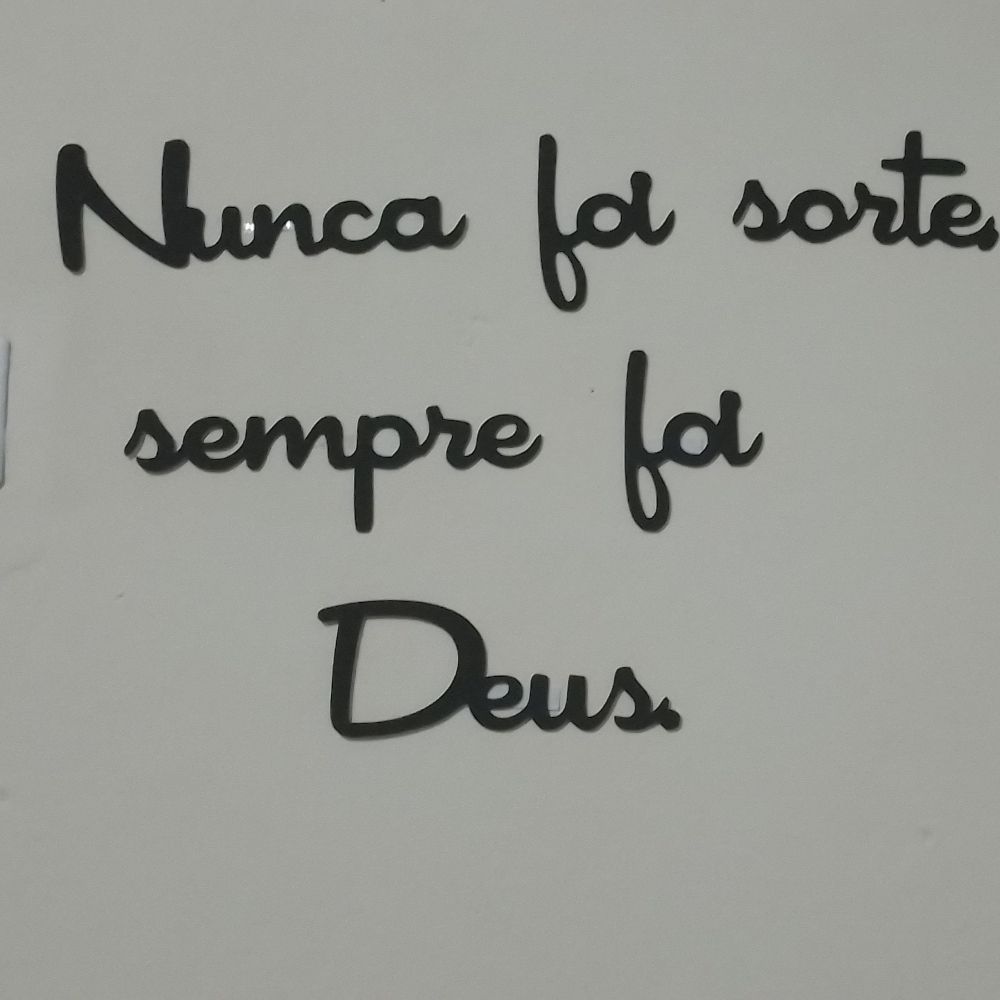 Nunca foi sorte,
sempre foi
Deus.